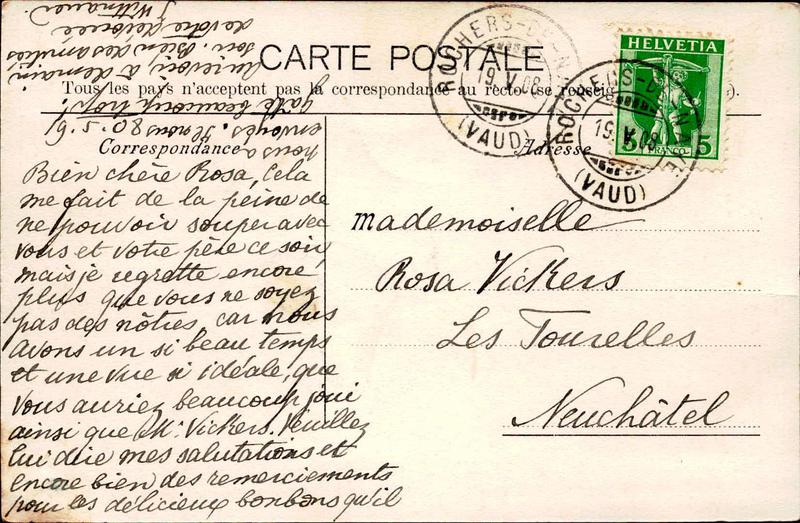 CARTE POSTALE
Tous les pays n'acceptent pas la correspondance au recto (se renseig
Correspondance
Adresse
HELVETIA
5 FRANCO 5
ROCHERS-DE-N
19.V.08
(VAUD)
ROCHERS-DE-NAYE
19.V.08
(VAUD)
Mademoiselle
Rosa Vickers
Les Tourelles
Neuchâtel
Bien chère Rosa, Cela
me fait de la peine de
ne pouvoir souper avec
vous et votre père ce soir
mais je regrette encore
plus que vous ne soyez
pas des nôtres, car nous
avons un si beau temps
et une vue si idéale, que
vous auriez beaucoup joui
ainsi que Mr. Vickers. Veuillez
lui dire mes salutations et
encore bien des remerciements
pour les délicieux bonbons qu'il
nous a
envoyés. Il nous
gâte beaucoup trop!
Au revoir, à demain
soir. Bien des amitiés
de votre dévouée
J. Wittnauer